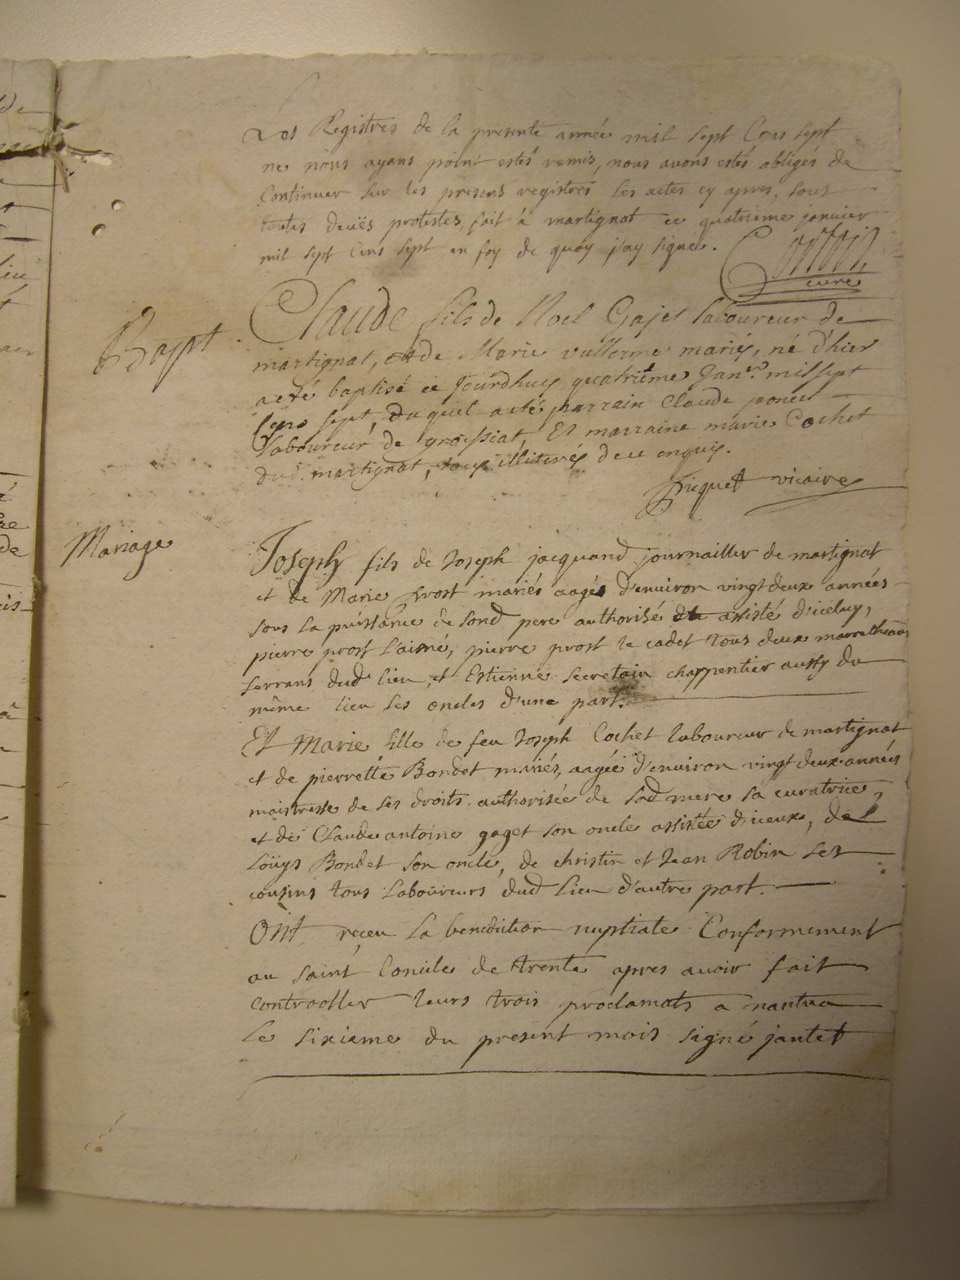 Les Registres de la presente année mil sept Cens sept
ne nous ayans point estés remis, nous avons estés obligés de
Continuer sur les presens registres les actes cy apres, sous
toutes deües protestes, fait à martignat ce quatrieme janvier
mil sept Cens sept en foy de quoy j'ay signé.
curé
Bapt.
Claude fils de Noel Gajet laboureur de
martignat, et de Marie vuillerme mariés, né d'hier
a eté baptisé ce Jourdhuy quatriême Janer. mil sept
Cens sept, duquel a eté parrain Claude
laboureur de groissiat, Et marraine marie Cochet
dud. martignat, tous illiterés deue enquis.
Picquet vicaire
Mariage
Joseph fils de Joseph jacquand journaillier de martignat
et de Marie prost mariés aagé d'environ vingt deux années
sous la puissance de sond pere authorisé et assisté d'iceluy,
pierre prost l'aisné, pierre prost le cadet tous deux
serrans dud lieu, et Estienne secretain charpentier aussy du
même lieu ses oncles d'une part.
Et Marie fille de feu Joseph Cochet laboureur de martignat
et de pierrette Bondet mariés, aagée d'environ vingt deux années
maistresse de ses droits authorisée de sad mere sa curatrice,
et de Claude antoine gaget son oncle assistée d'iceux, de
Loüys Bondet son oncle, de christin et Jean Robin ses
cousins tous laboureurs dud lieu d'autre part.
Ont reçeu la benediction nuptiale Conformement
au saint Concile de trente apres avoir fait
controoller leurs trois proclamats a nantua
le sixieme du present mois signé jantet